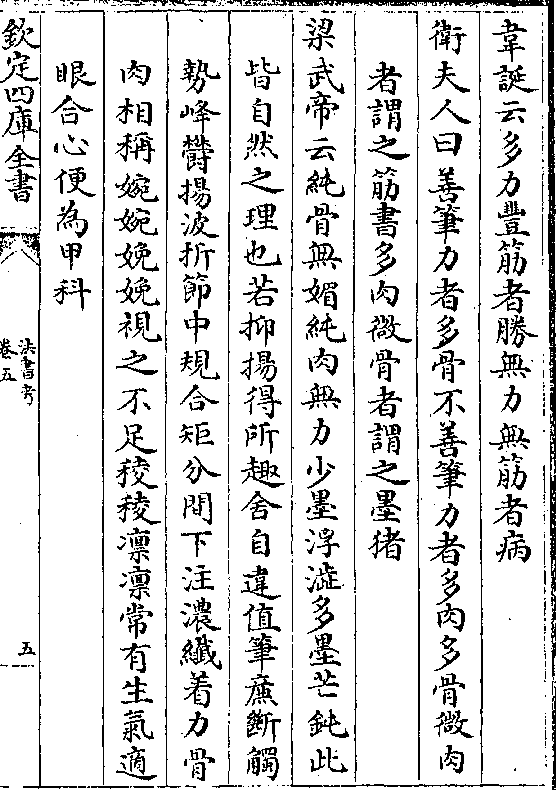 韋誕云多力豐筋者勝無力無筋者病
衛夫人曰善筆力者多骨不善筆力者多肉多骨微肉
者謂之筋書多肉微骨者謂之墨猪
梁武帝云純骨無媚純肉無力少墨浮澁多墨芒鈍此
皆自然之理也若抑揚得所趣舍自違值筆廉斷觸
勢峰欝揚波折節中規合矩分間下注濃纎着力骨
肉相稱婉婉娩娩視之不足稜稜凛凛常有生氣適
眼合心便為甲科
欽定四庫全書
法書考
卷五
五